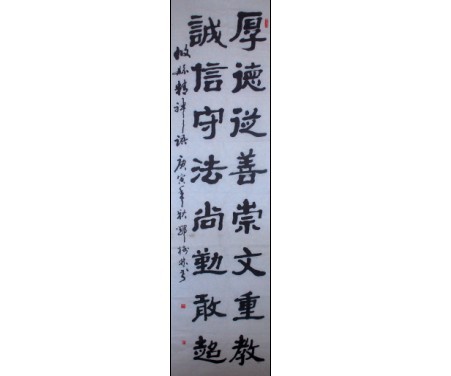 厚德從善崇文重教
誠信守法尚勤敢超
攸縣精神 庚寅年秋